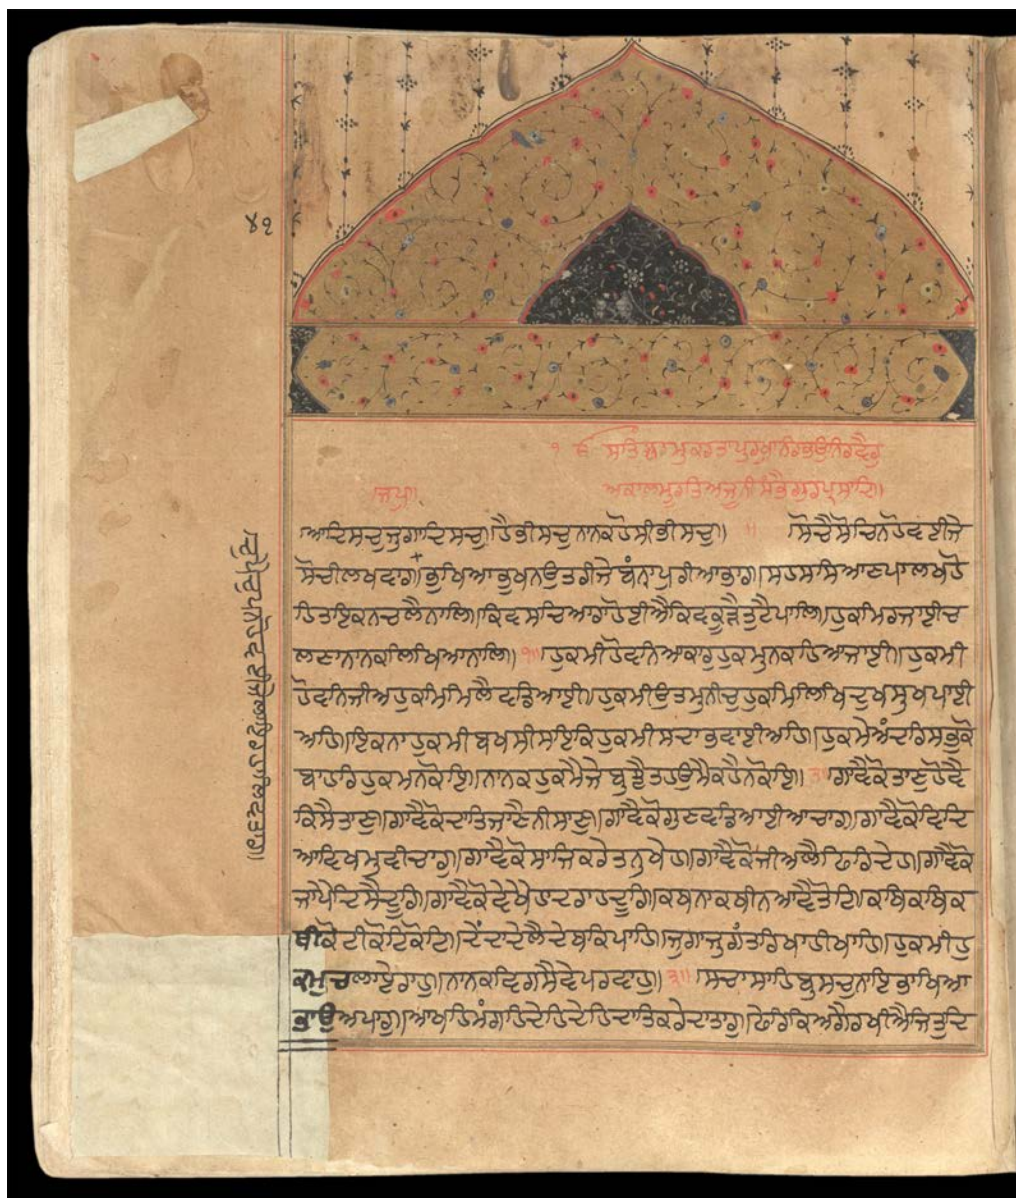 ੪੧
ੴ ਸਤਿਨਾਮੁਕਰਤਾਪੁਰਖੁਨਿਰਭਉਨਿਰਵੈਰੁ
ਅਕਾਲਮੂਰਤਿਅਜੂਨੀਸੈਭੰਗੁਰਪ੍ਰਸਾਦਿ॥
॥ਜਪੁ॥
॥ਆਦਿਸਚੁਜੁਗਾਦਿਸਚੁ॥ਹੈਭੀਸਚੁਨਾਨਕਹੋਸੀਭੀਸਚੁ॥ ॥ਸੋਚੈਸੋਚਿਨਹੋਵਈਜੇ
ਸੋਚੀਲਖਵਾਰ॥ਭੁਖਿਆਭੁਖਨਉਤਰੀਜੇਬੰਨਾਪੁਰੀਆਭਾਰ॥ਸਹਸਸਿਆਣਪਾਲਖਹੋ
ਹਿਤਇਕਨਚਲੈਨਾਲਿ॥ਕਿਵਸਚਿਆਰਾਹੋਈਐਕਿਵਕੂੜੈਤੁਟੈਪਾਲਿ॥ਹੁਕਮਿਰਜਾਈਚ
ਲਣਾਨਾਨਕਲਿਖਿਆਨਾਲਿ॥੧॥ਹੁਕਮੀਹੋਵਨਿਆਕਾਰਹੁਕਮੁਨਕਹਿਆਜਾਈ॥ਹੁਕਮੀ
ਹੋਵਨਿਜੀਅਹੁਕਮਿਮਿਲੈਵਡਿਆਈ॥ਹੁਕਮੀਉਤਮੁਨੀਚੁਹੁਕਮਿਲਿਖਿਦੁਖਸੁਖਪਾਈ
ਅਹਿ॥ਇਕਨਾਹੁਕਮੀਬਖਸੀਸਇਕਿਹੁਕਮੀਸਦਾਭਵਾਈਅਹਿ॥ਹੁਕਮੇਅੰਦਰਿਸਭੁਕੋ
ਬਾਹਰਿਹੁਕਮਨਕੋਇ॥ਨਾਨਕਹੁਕਮੈਜੇਬੁਝੈਤਹਉਮੈਕਹੈਨਕੋਇ॥੨॥ਗਾਵੈਕੋਤਾਣੁਹੋਵੈ
ਕਿਸੈਤਾਣੁ॥ਗਾਵੈਕੋਦਾਤਿਜਾਣੈਨੀਸਾਣੁ॥ਗਾਵੈਕੋਗੁਣਵਡਿਆਈਆਚਾਰ॥ਗਾਵੈਕੋਵਿਦਿ
ਆਵਿਖਮੁਵੀਚਾਰੁ॥ਗਾਵੈਕੋਸਾਜਿਕਰੇਤਨੁਖੇਹ॥ਗਾਵੈਕੋਜੀਅਲੈਫਿਰਿਦੇਹ॥ਗਾਵੈਕੋ
ਜਾਪੈਦਿਸੈਦੂਰਿ॥ਗਾਵੈਕੋਵੇਖੈਹਾਦਰਾਹਦੂਰਿ॥ਕਥਨਾਕਥੀਨਆਵੈਤੋਟਿ॥ਕਥਿਕਥਿਕ
ਥੀਕੋਟੀਕੋਟਿਕੋਟਿ॥ਦੇਂਦਾਦੇਲੈਦੇਥਕਿਪਾਹਿ॥ਜੁਗਾਜੁਗੰਤਰਿਖਾਹੀਖਾਹਿ॥ਹੁਕਮੀਹੁ
ਕਮੁਚਲਾਏਰਾਹੁ॥ਨਾਨਕਵਿਗਸੈਵੇਪਰਵਾਹੁ॥੩॥ਸਚਾਸਾਹਿਬੁਸਚੁਨਾਇਭਾਖਿਆ
ਭਾਉਅਪਾਰੁ॥ਆਖਹਿਮੰਗਹਿਦੇਹਿਦੇਹਿਦਾਤਿਕਰੇਦਾਤਾਰੁ॥ਫਿਰਿਕਿਅਗੈਰਖੀਐਜਿਤੁਦਿ
॥ਚੁਪੈਚੁਪਨਹੋਵਈਜੇਲਾਇਰਹਾਲਿਵਤਾਰ॥